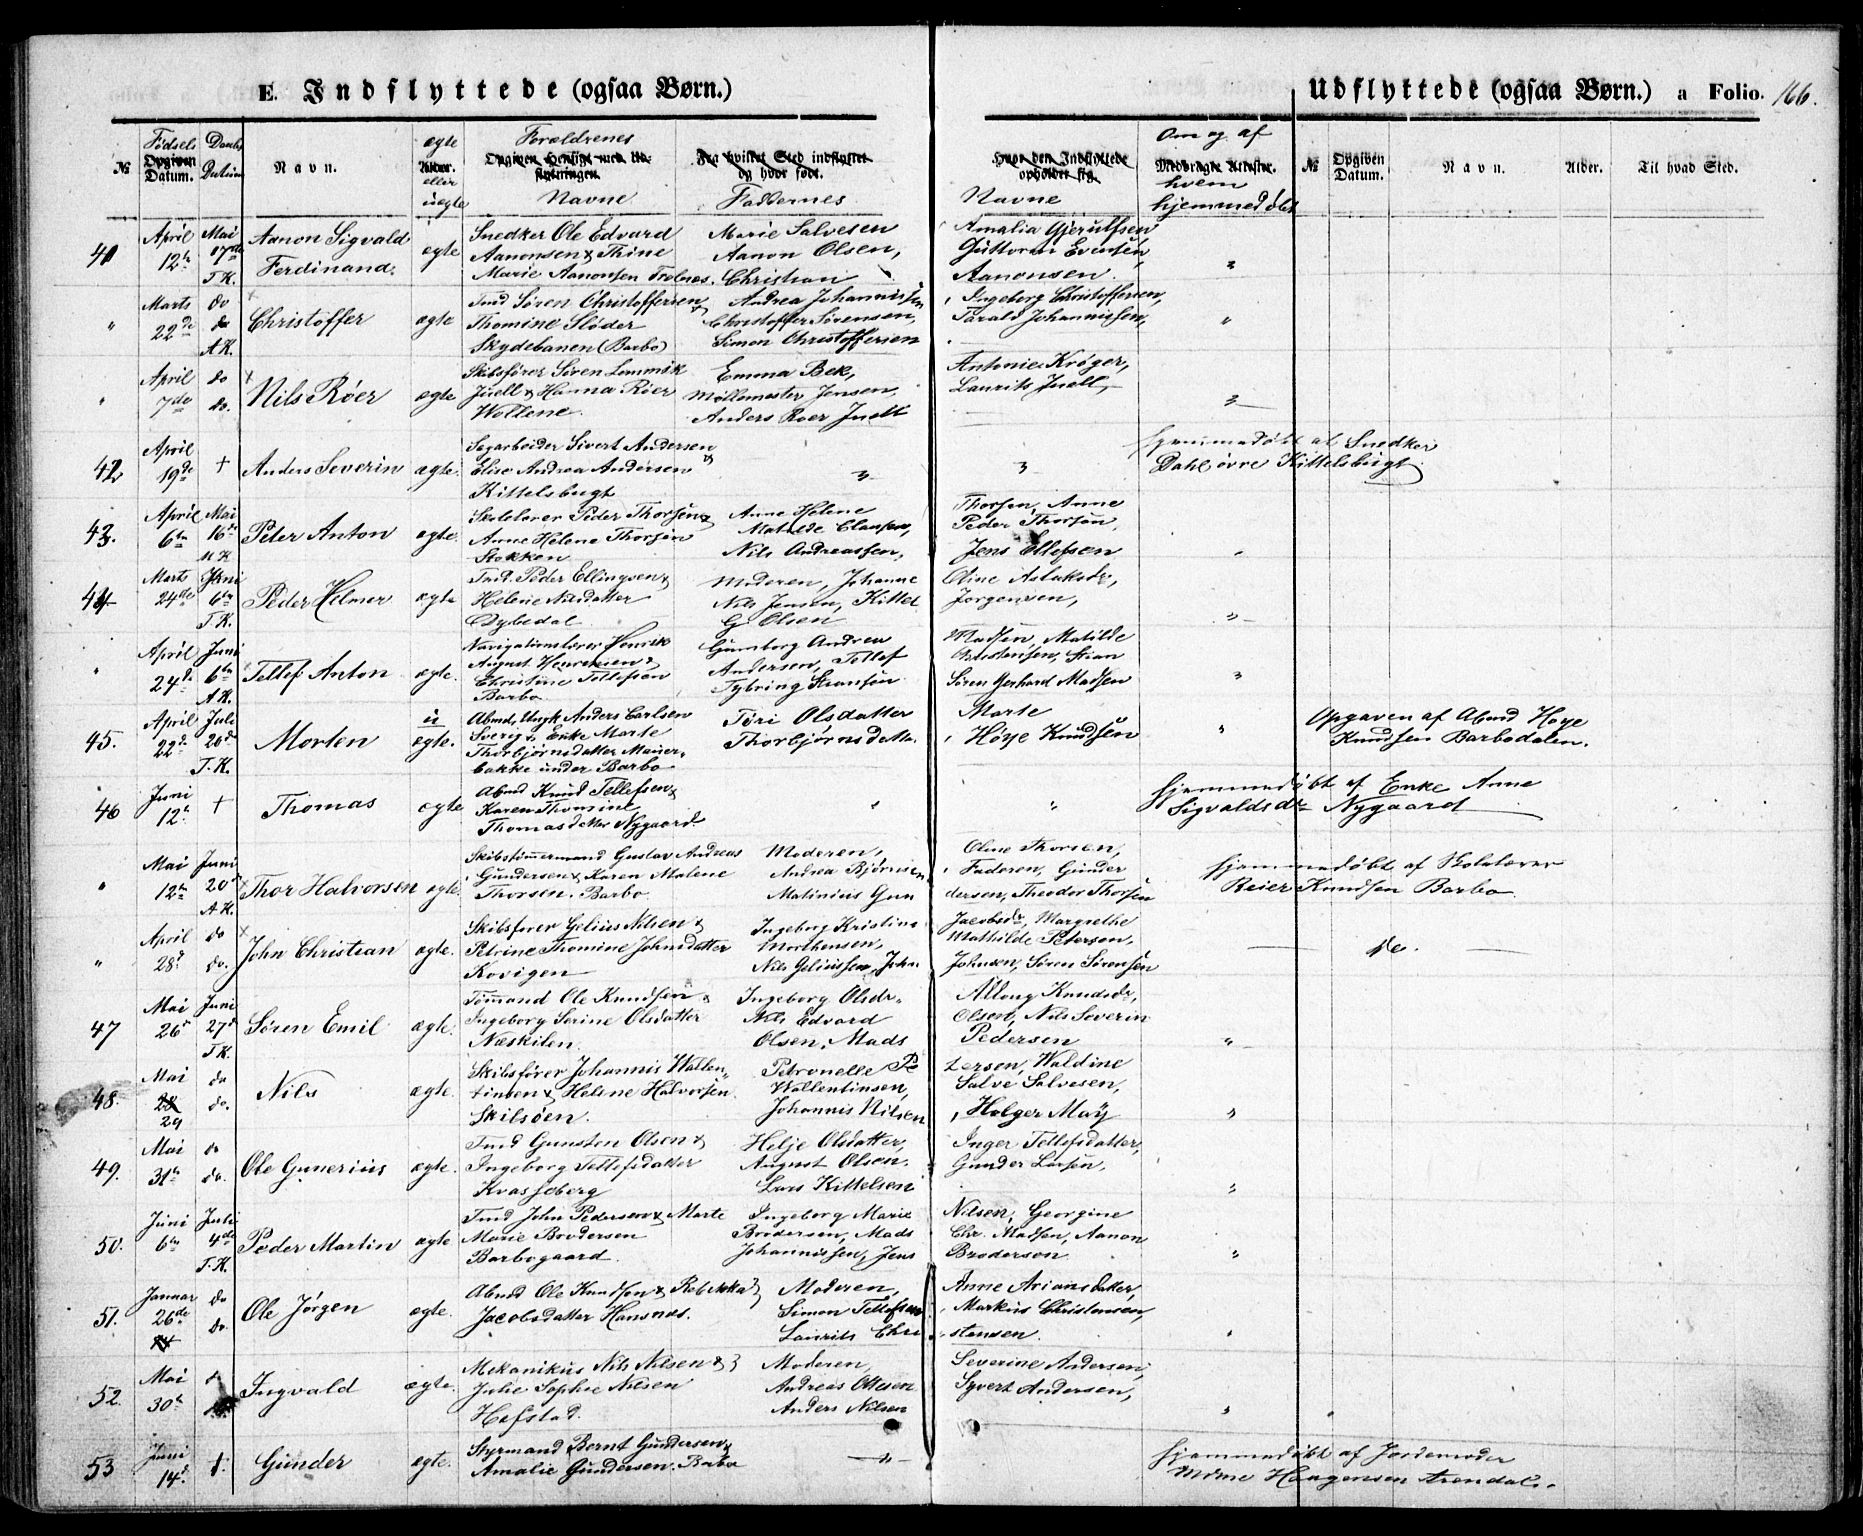 E. Indflyttede (ogsaa Børn.)
Udflyttede (ogsaa Børn.) a Folio. 166.
№ Fødsels Opgiven Datum. Daabs Datum Navn. ægte Alder. eller uægte Forældrenes Navne Faddernes
Navne Om og af hvem hjemmedøbt № Opgiven Datum. Navn. Alder. Til hvad Sted.
April Mai Aanon Sigvald Snedker Ole Edvard Marie Salvesen Amalia Gjerulfsen
41 12te 17de Ferdinand. ægte Aanonsen & Thine Aanon Olsen, Guttorm Evensen, "
T.K. Marie Aanonsen Christian Aanonsen.
Marts do Tmd Søren Christoffersen & Andrea Johannissen, Ingeborg Christoffersen,
" 22de do Christoffer ægte Thomine Sløder Christoffer Sørensen, Tarald Johannissen, "
A.K. Skydebanen (Barbo) Simon Christoffersen
April do Skibsfører Søren Lemmik Emma Bek, Antonie Krøger,
" 7de do. Nils Röer ægte Juell & Hanna Röer Møllemester Jensen, Laurits Juell, "
Wollene. Anders Roer Juell
April Sagarbeider Sivert Andersen Hjemmedøbt af Snedker
42 19de + Anders Severin ægte. Elise Andrea Andersen " " Dahl øvre Kittelsbugt.
Kittelsbugt
April Mai Skolelærer Peder Thorsen & Anne Helene Thorsen, Anne
43. 6te 16de Peter Anton ægte. Anne Helene Thorsen Matilde Clausen, Peder Thorsen,
Stokken Nils Andreassen, Jens Ellefsen "
Marts Juni Tmd. Peder Ellingsen & Moderen, Johanne Oline Aslaksdr,
44 24de 6te Peder Helmer ægte Helene Nilsdatter Nils Jensen, Kittel Jørgensen, "
T.K. Dybedal. G Olsen
April Juni Navigationslærer Henrik Gunborg Andrea Madsen, Matilde
" 24de 6te Tellef Anton ægte. August Henriksen & Andersen, Tellef Christensen, Stian "
A.K. Christine Tellefsen Tybring Søren Gerhard Madsen
Barbo
April Juli u Abmd. Ungk Anders Carlsen Tøri Olsdatter Marte Opgaven af Abmd Høye
45. 22de 20de Morten ægte. Sverig & Enke Marte Thorbjørnsd. Høye Knudsen " Knudsen Barbodalen.
T.K. Thorbjørnsdatter
bakke under Barbo
Juni Abmd Knud Tellefsen & Hjemmedøbt af Enke Anne
46 12te + Thomas ægte Karen Thomine " " Sigvaldsdr Nygaard
Thomasdatter Nygaard.
Mai Juni Skibstømmermand Gustav Andreas Moderen, Oline Thorsen, Hjemmedøbt af Skolelærer
" 12te 20de Thor Halvorsen ægte. Gundersen & Karen Malene Andrea Faderen, Gunder Reier Knudsen Barbo.
A.K. Thorsen. Barbo Matinius Gun dersen, Theodor Thorsen
April do Skibsfører Gelius Nilsen & Ingeborg Kristine Jacobsdr, Margrethe
" 28de do. John Christian ægte. Petrine Thomine Johnsdatter Morthensen, Mathilde Petersen, do.
Kovigen Nils Geliussen, John Johnsen, Søren Sørensen
Mai Juni Tømmand Ole Knudsen & Ingeborg Olsdr. Alloug Knudsdr,
47 26de 27de Søren Emil ægte. Ingeborg Serine Olsdatter Nils Edvard Olsen, Nils Severin
T.K. Næskilen. Olsen, Mads Pedersen "
Mai do Skibsfører Johannis Wallen= Petronelle Pe tersen, Waldine
48. 28 29 do. Nils ægte. tinsen & Helene Halvorsen. Wallentinsen, Salve Salvesen,
Skilsøen. Johannis Nilsen, Holger May "
Mai do Tmd Gunsten Olsen & Helje Olsdatter, Inger Tellefsdatter,
49. 31te do. Ole Gunerius ægte. Ingeborg Tellefsdatter August Olsen, Gunder Larsen,
Kvasseberg Lars Kittelsen "
Juni Juli Tmd John Pedersen & Marte Ingeborg Marie Nilsen, Georgine
50. 6te 4de Peder Martin ægte Marie Brodersen Brodersen, Mads Chr. Madsen, Aanon
T.K. Barbogaard. Johannissen, Jens Brodersen "
Januar do Abmd Ole Knudsen & Rebekka Moderen, Anne Ariansdatter,
51. 26de do. Ole Jørgen ægte. Jacobsdatter Hansnæs. Simon Tellefsen, Markus Christensen,
Laurits Chri= stensen. "
Mai do Mekanikus Nils Nilsen & Moderen, Severine Andersen,
52. 30te Ingvald ægte. Julie Sophie Nilsen Andreas Ottesen Syvert Andersen,
Hafstad. Anders Nilsen "
Juni Styrmand Bernt Gundersen & Hjemmedøbt af Jordemoder
53 14de + Gunder ægte. Amalie Gundersen. Barbo " Mdme Haagensen Arendal.